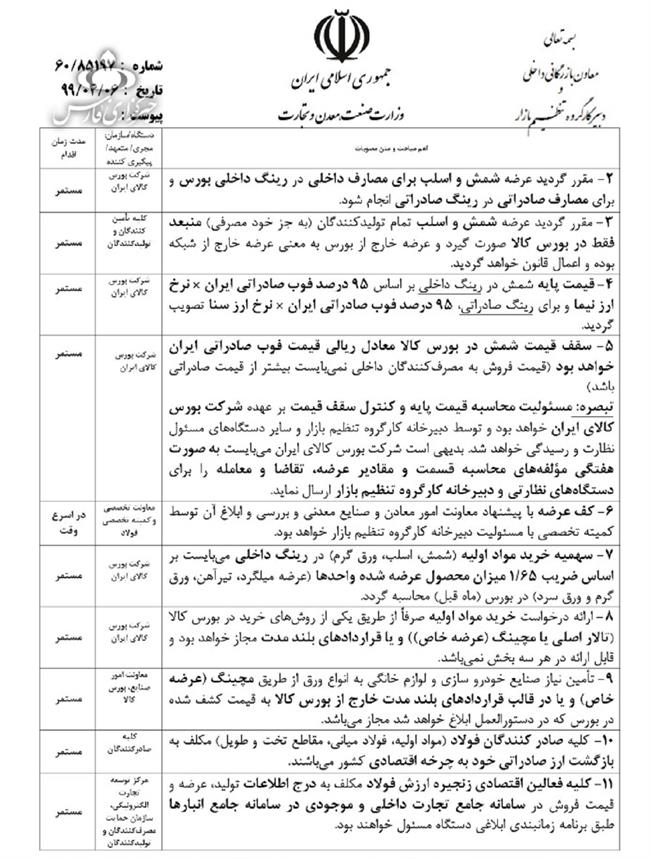 بسمه تعالی
معاون بازرگانی داخلی
و
دبیر کارگروه تنظیم بازار
جمهوری اسلامی ایران
وزارت صنعت، معدن و تجارت
شماره : ۶۰/۸۵۱۹۷
تاریخ : ۹۹/۰۴/۰۶
پیوست :
خبرگزاری فارس
اهم مباحث و متن مصوبات
دستگاه/سازمان:
مجری/ متعهد/
پیگیری کننده
مدت زمان
اقدام
۲- مقرر گردید عرضه شمش و اسلب برای مصارف داخلی در رینگ داخلی بورس و
برای مصارف صادراتی در رینگ صادراتی انجام شود.
شرکت بورس
کالای ایران
مستمر
۳- مقرر گردید عرضه شمش و اسلب تمام تولیدکنندگان (به جز خود مصرفی) منبعد
فقط در بورس کالا صورت گیرد و عرضه خارج از بورس به معنی عرضه خارج از شبکه
بوده و اعمال قانون خواهد گردید.
کلیه تأمین
کنندگان و
تولیدکنندگان
مستمر
۴- قیمت پایه شمش در رینگ داخلی بر اساس ۹۵ درصد فوب صادراتی ایران × نرخ
ارز نیما و برای رینگ صادراتی، ۹۵ درصد فوب صادراتی ایران × نرخ ارز سنا تصویب
گردید.
شرکت بورس
کالای ایران
مستمر
۵- سقف قیمت شمش در بورس کالا معادل ریالی قیمت فوب صادراتی ایران
خواهد بود (قیمت فروش به مصرف‌کنندگان داخلی نمی‌بایست بیشتر از قیمت صادراتی
باشد)
تبصره: مسئولیت محاسبه قیمت پایه و کنترل سقف قیمت بر عهده شرکت بورس
کالای ایران خواهد بود و توسط دبیرخانه کارگروه تنظیم بازار و سایر دستگاه‌های مسئول
نظارت و رسیدگی خواهد شد. بدیهی است شرکت بورس کالای ایران می‌بایست به صورت
هفتگی مؤلفه‌های محاسبه قسمت و مقادیر عرضه، تقاضا و معامله را برای
دستگاه‌های نظارتی و دبیرخانه کارگروه تنظیم بازار ارسال نماید.
شرکت بورس
کالای ایران
مستمر
۶- کف عرضه با پیشنهاد معاونت امور معادن و صنایع معدنی و بررسی و ابلاغ آن توسط
کمیته تخصصی با مسئولیت دبیرخانه کارگروه تنظیم بازار خواهد بود.
معاونت تخصصی
و کمیته تخصصی
فولاد
در اسرع
وقت
۷- سهمیه خرید مواد اولیه (شمش، اسلب، ورق گرم) در رینگ داخلی می‌بایست بر
اساس ضریب ۱/۶۵ میزان محصول عرضه شده واحدها (عرضه میلگرد، تیرآهن، ورق
گرم و ورق سرد) در بورس (ماه قبل) محاسبه گردد.
شرکت بورس
کالای ایران
مستمر
۸- ارائه درخواست خرید مواد اولیه صرفاً از طریق یکی از روش‌های خرید در بورس کالا
(تالار اصلی یا مچینگ (عرضه خاص)) و یا قراردادهای بلند مدت مجاز خواهد بود و
قابل ارائه در هر سه بخش نمی‌باشد.
شرکت بورس
کالای ایران
مستمر
۹- تأمین نیاز صنایع خودرو سازی و لوازم خانگی به انواع ورق از طریق مچینگ (عرضه
خاص) و یا در قالب قراردادهای بلند مدت خارج از بورس کالا به قیمت کشف شده
در بورس که در دستورالعمل ابلاغ خواهد شد مجاز می‌باشد.
معاونت امور
صنایع، بورس
کالا
مستمر
۱۰- کلیه صادر کنندگان فولاد (مواد اولیه، فولاد میانی، مقاطع تخت و طویل) مکلف به
بازگشت ارز صادراتی خود به چرخه اقتصادی کشور می‌باشند.
کلیه
صادرکنندگان
مستمر
۱۱- کلیه فعالین اقتصادی زنجیره ارزش فولاد مکلف به درج اطلاعات تولید، عرضه و
قیمت فروش در سامانه جامع تجارت داخلی و موجودی در سامانه جامع انبارها
طبق برنامه زمانبندی ابلاغی دستگاه مسئول خواهند بود.
مرکز توسعه
تجارت
الکترونیکی،
سازمان حمایت
مصرف‌کنندگان و
تولیدکنندگان
مستمر